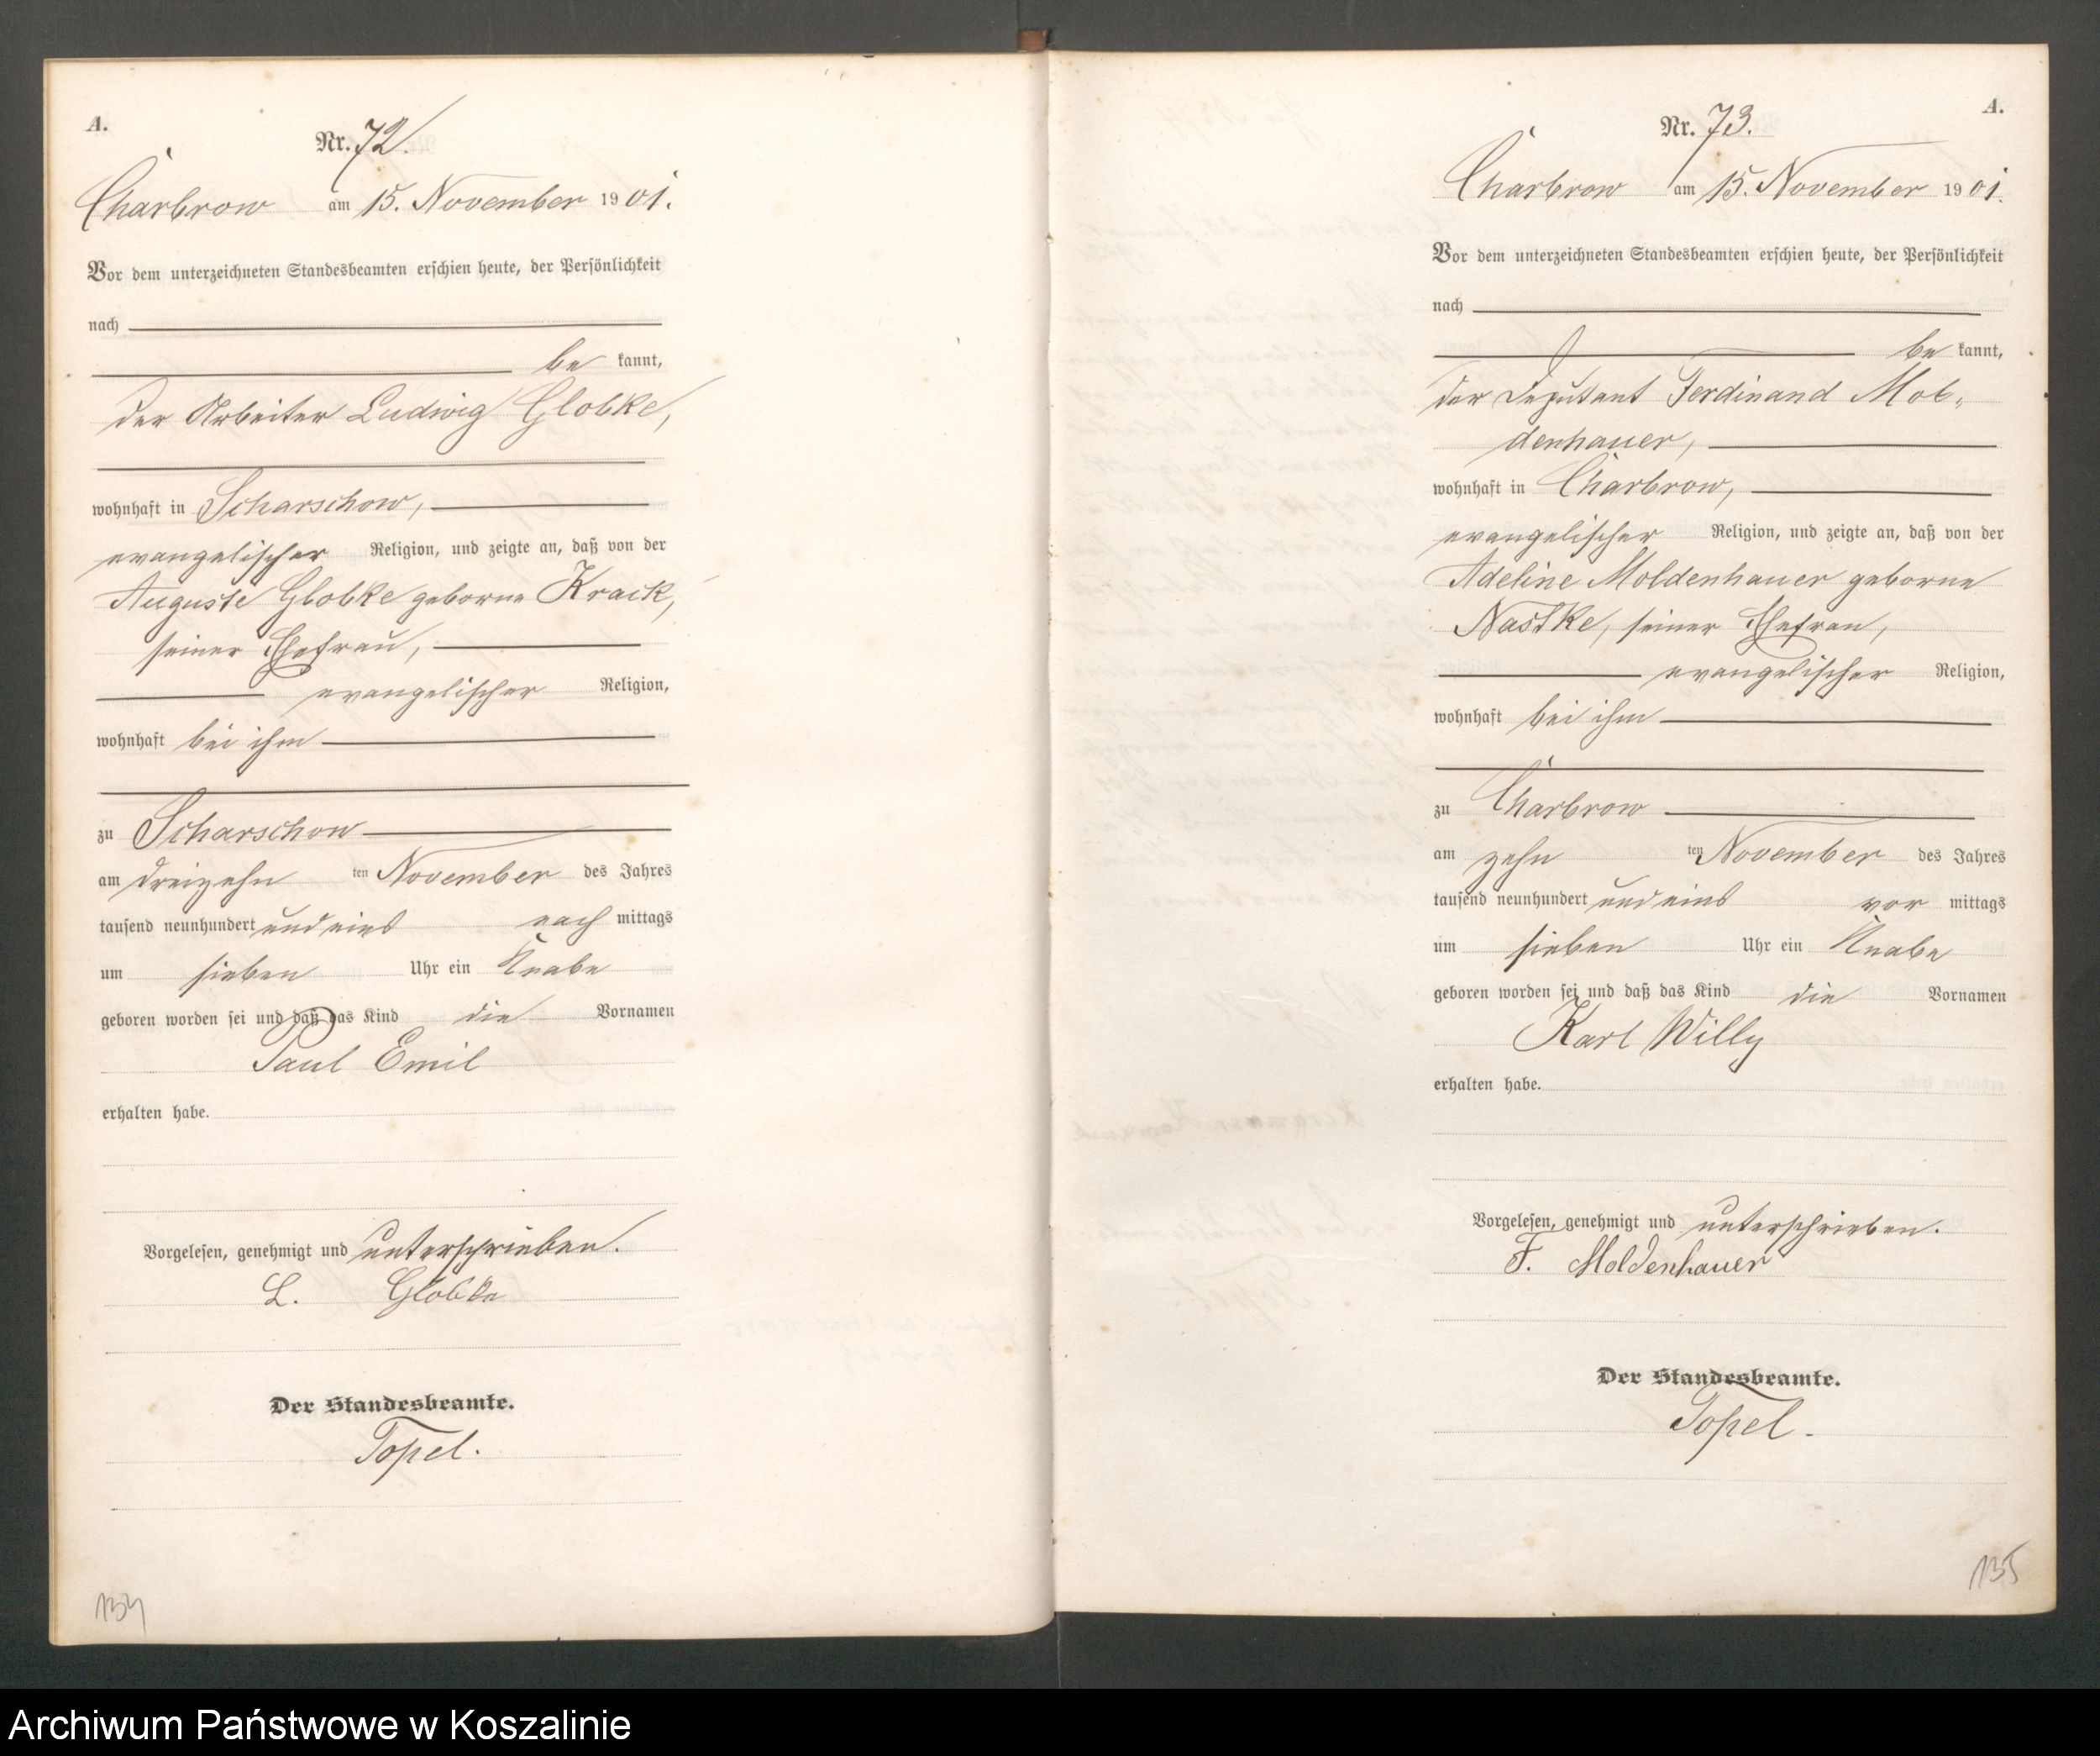 A.
Nr. 72.
Charbrow am 15. November 1901.
Vor dem unterzeichneten Standesbeamten erschien heute, der Persönlichkeit
nach
be kannt,
der Arbeiter Ludwig Globke,
wohnhaft in Scharschow,
evangelischer Religion, und zeigte an, daß von der
Auguste Globke geborne Krack,
seiner Ehefrau,
evangelischer Religion,
wohnhaft bei ihm
zu Scharschow
am dreizehn ten November des Jahres
tausend neunhundert und eins nach mittags
um sieben Uhr ein Knabe
geboren worden sei und daß das Kind die Vornamen
Paul Emil
erhalten habe.
Vorgelesen, genehmigt und unterschrieben.
L. Globke
Der Standesbeamte.
Topel.
134
A.
Nr. 73.
Charbrow am 15. November 1901.
Vor dem unterzeichneten Standesbeamten erschien heute, der Persönlichkeit
nach
be kannt,
der Deputant Ferdinand Mol-
denhauer,
wohnhaft in Charbrow,
evangelischer Religion, und zeigte an, daß von der
Adeline Moldenhauer geborne
Nastke, seiner Ehefrau,
evangelischer Religion,
wohnhaft bei ihm
zu Charbrow
am zehn ten November des Jahres
tausend neunhundert und eins vor mittags
um sieben Uhr ein Knabe
geboren worden sei und daß das Kind die Vornamen
Karl Willy
erhalten habe.
Vorgelesen, genehmigt und unterschrieben.
F. Moldenhauer
Der Standesbeamte.
Topel.
135
Archiwum Państwowe w Koszalinie